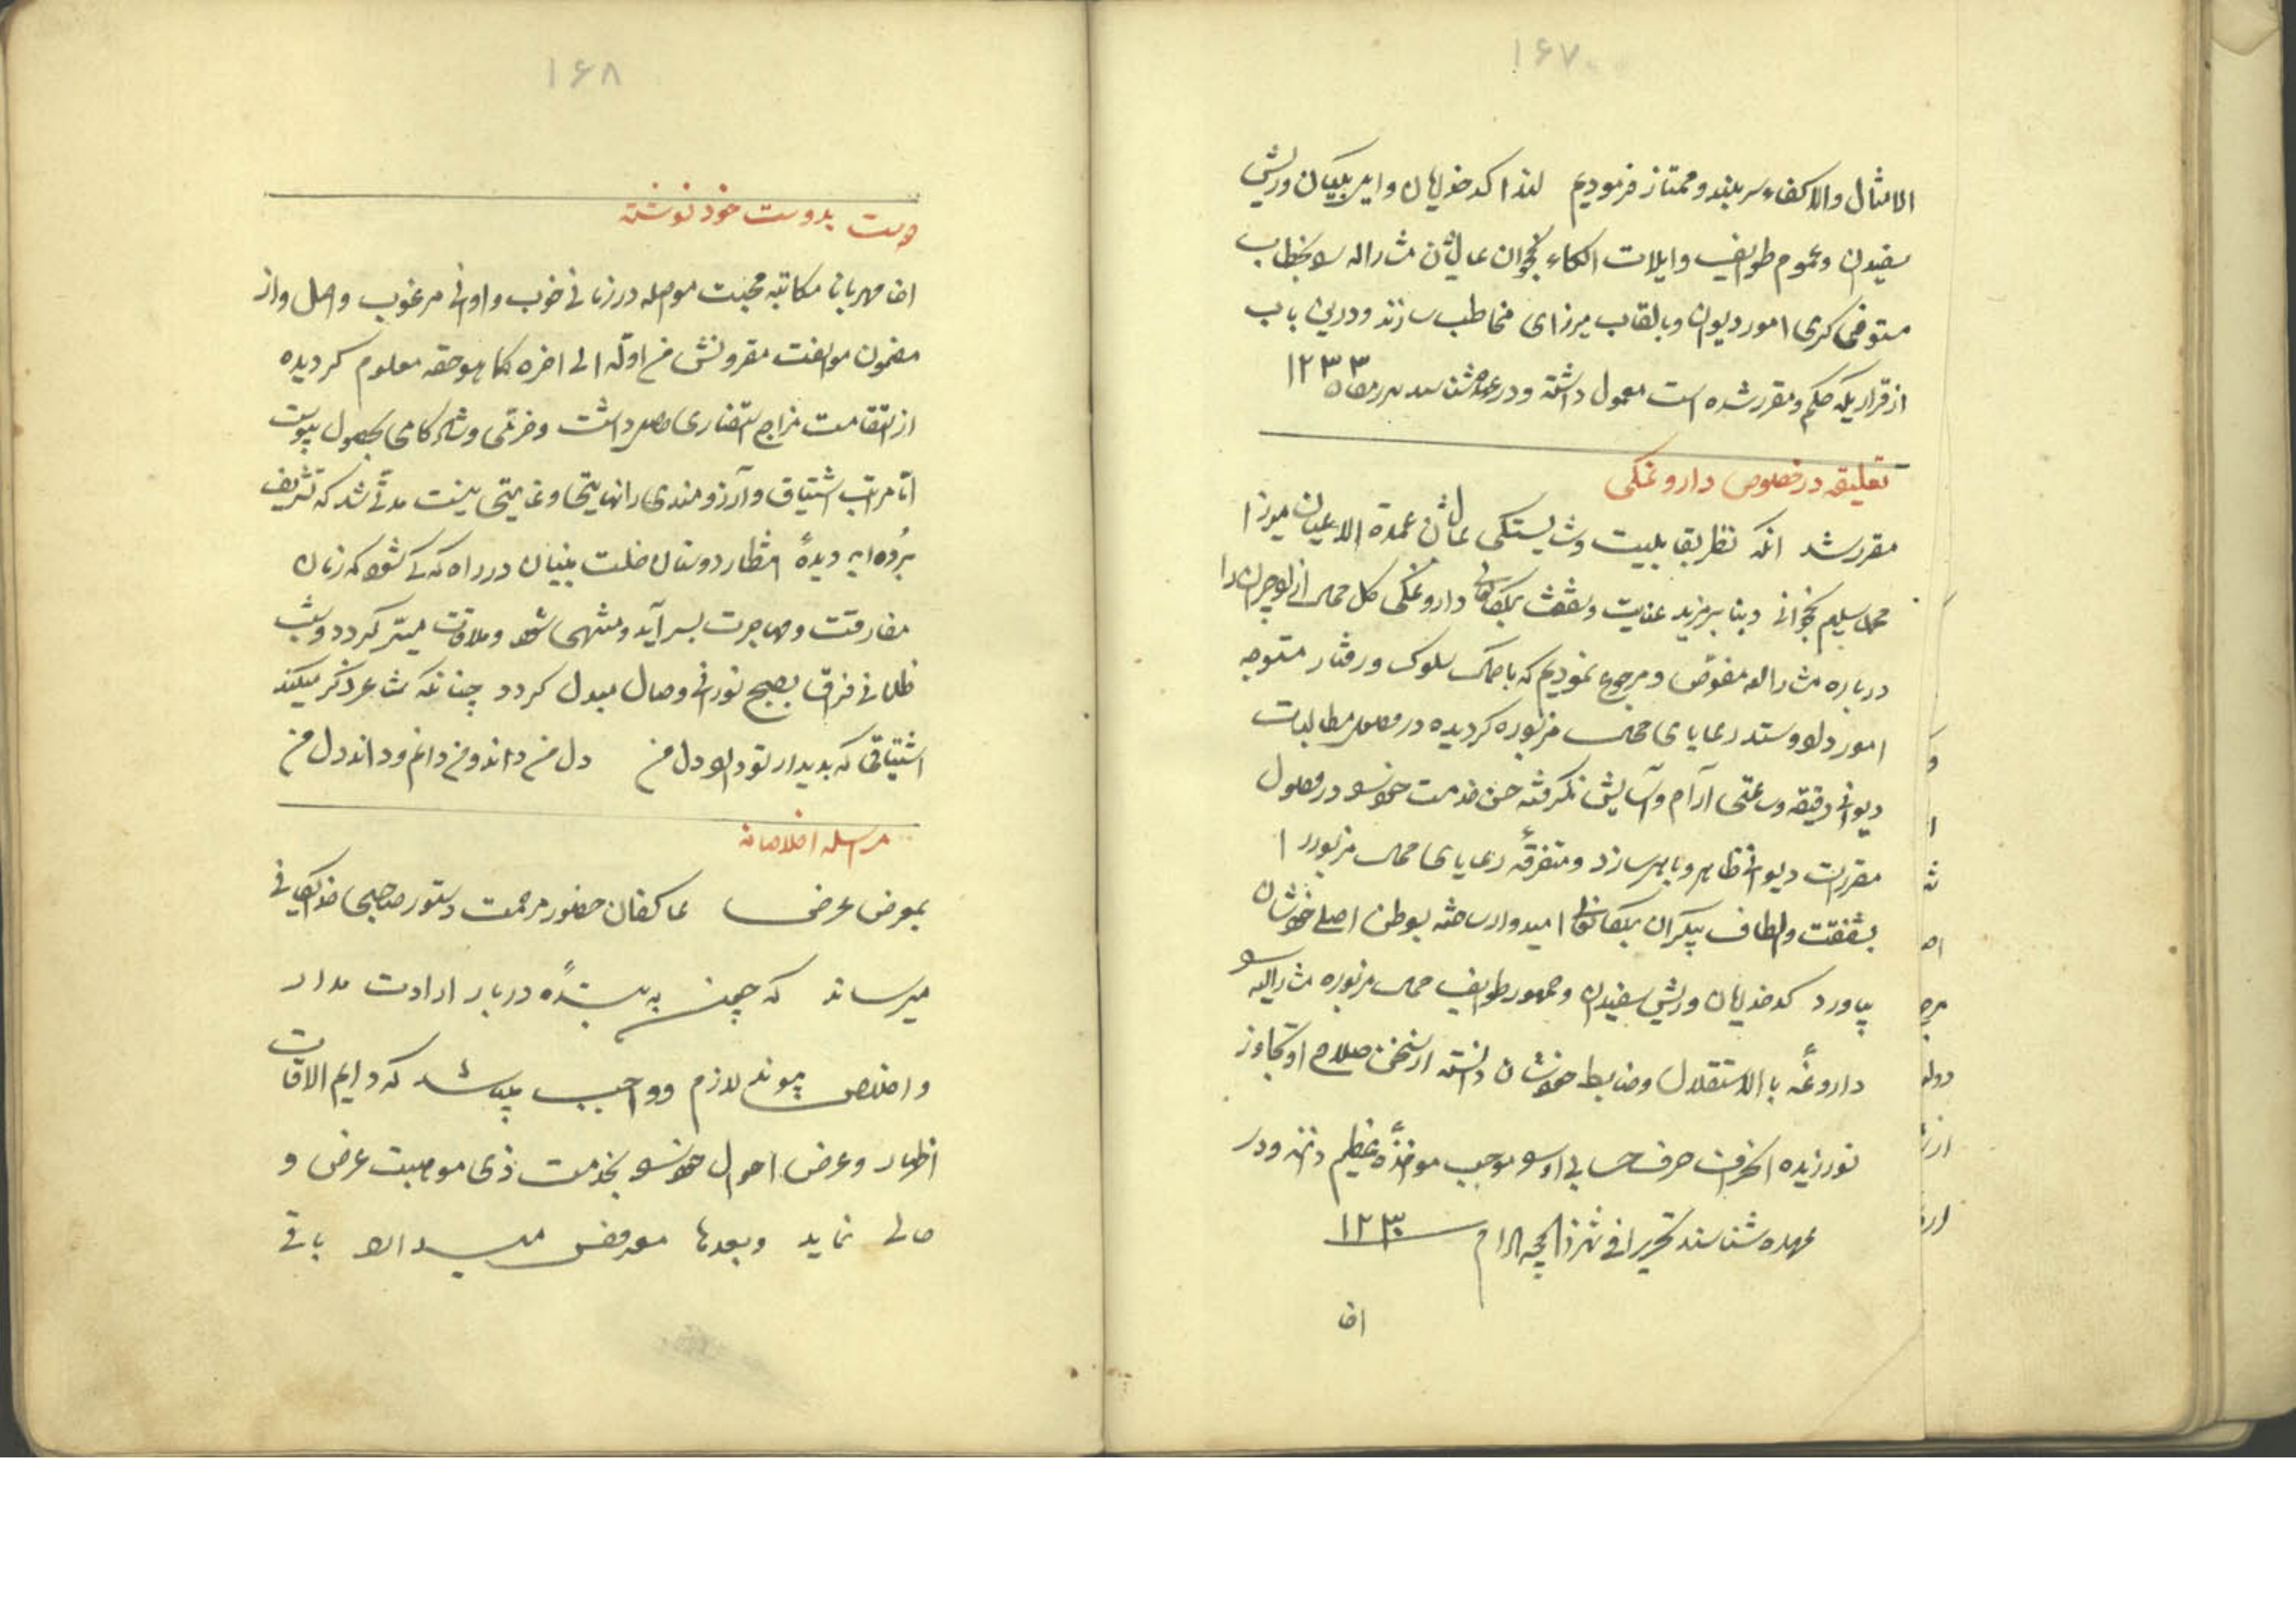 ۱۶۷
الامثال والاکفاء سربلند و ممتاز فرمودیم لهذا کدخدایان و امیر بیکیان وریش
سفیدان و عموم طوایف وایلات الکاء نخجوان عالیشان مشارالیه بخطاب
متوفی کری امور دیوان وبالقاب میرزای مخاطب سازند ودرین باب
از قراریکه حکم و مقرر شده است معمول داشته ودر عهده شناسند ۱۲۳۳
تعلیقه در خصوص داروغکی
مقرر شد انکه نظر بقابلیت وشایستکی عالیشان عمدة الاعیان میرزا
محمد سلیم نخجوانی وبنا بر مزید عنایت وشفقت داروغکی کل محال را
درباره مشارالیه مفوض و مرجوع نمودیم که باحسن سلوک ورفتار متوجه
امور داد وستد رعایای محال مزبوره کردیده در وصول مطالبات
دیوانی دقیقه وساعتی آرام وآسایش نکرفته حسن خدمت در وصول
مقررات دیوانی ظاهر وباهر سازد ومتفرقه رعایای محال مزبور را
بشفقت والطاف بیکران امیدوار ساخته بوطن اصلی خودشان
بیاورد کدخدایان وریش سفیدان وجمهور طوایف محال مزبوره مشارالیه
داروغه با الاستقلال وضابط خودشان دانسته از سخن صلاح او تجاوز
نورزیده انحراف حرف حسابی او موجب مواخذه عظیم دانند ودر
عهده شناسند تحریرا فی شهر ذالحجه الحرام ۱۲۳۰
اف
۱۶۸
دوست بدوست خود نوشته
مهربانا مکاتبه محبت مواصله در زمانی خوب واوانی مرغوب واصل واز
مضمون موالفت مقرونش من اوله الی اخره کما هو حقه معلوم کردیده
از استقامت مزاج استفساری حاصل داشت وخرمی وشادکامی بحصول پیوست
اما مراتب اشتیاق وآرزومندی را نهایتی وغایتی نیست مدتی شد که تشریف
برده اید دیده انتظار دوستان در راه که کی شود که زمان
مفارقت ومهاجرت بسر آید ومنتهی شود وملاقات میسر کردد وشب
ظلمانی فراق بصبح نورانی وصال مبدل کردد چنانکه شاعر ذکر میکند
اشتیاقی که بدیدار تو دارد دل من دل من داند ومن دانم وداند دل من
مراسله اخلاصانه
بمعرض عرض عاکفان حضور مرحمت دستور صاحبی
میرساند که چون به بنده دربار ارادت مدار
واخلاص پیوند لازم وواجب میباشد که دایم الاوقات
اظهار وعرض احوال بخدمت ذی موهبت عرض و
حالی نماید وبعدها معروض میدارد باقی